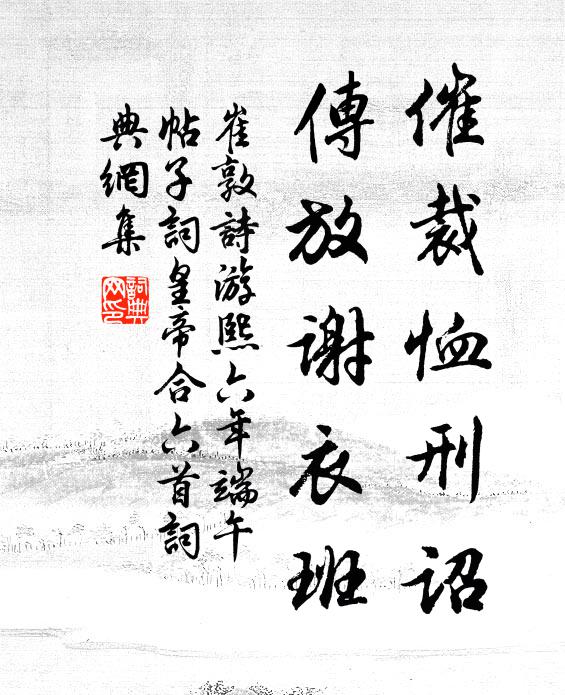 催裁恤刑詔
傳放謝衣班
崔敦詩游熙六年端午
帖子詞皇帝合六首詞
典網集
詞典网印